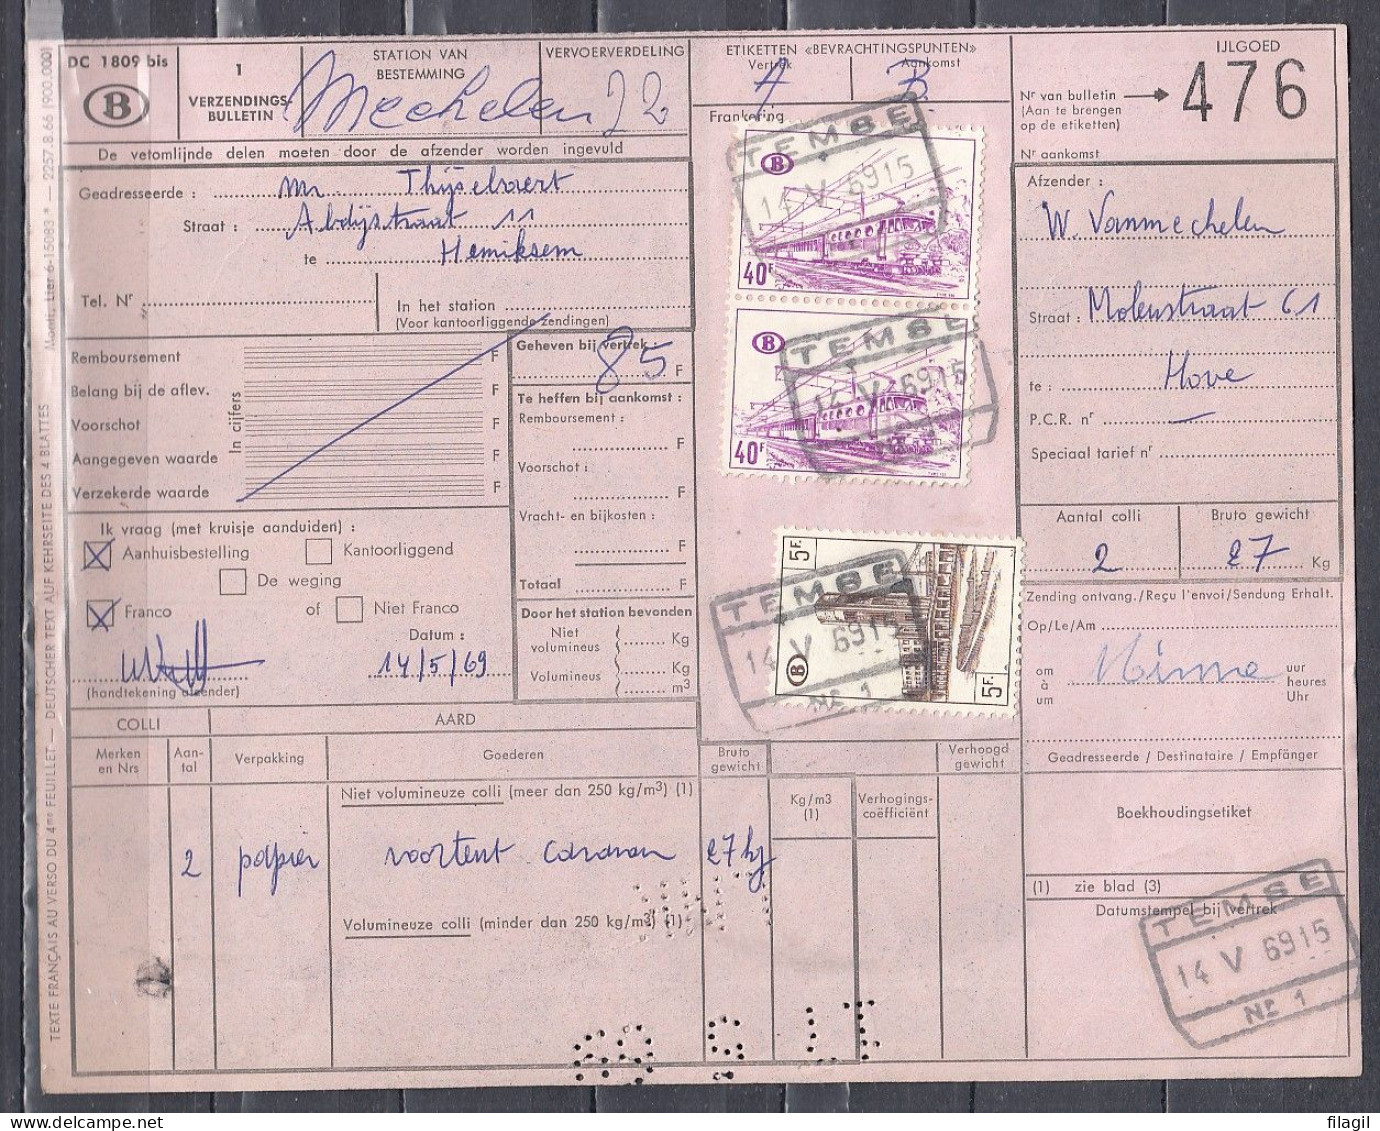 DC 1809 bis
B
1
VERZENDINGS-
BULLETIN
STATION VAN
BESTEMMING
Mechelen
VERVOERVERDELING
22
ETIKETTEN «BEVRACHTINGSPUNTEN»
Vertrek
Aankomst
A
B
Frankering
IJLGOED
Nr van bulletin
(Aan te brengen
op de etiketten)
476
Nr aankomst
De vetomlijnde delen moeten door de afzender worden ingevuld
Geadresseerde : Mr. Thijsebaert
Straat : Abdijstraat 11
te Hemiksem
Tel. Nr
In het station
(Voor kantoorliggende zendingen)
Afzender :
W. Vanmechelen
Straat : Molenstraat 61
te : Hove
P.C.R. nr
Speciaal tarief nr
Remboursement F
Belang bij de aflev. F
Voorschot F
Aangegeven waarde F
Verzekerde waarde F
In cijfers
Geheven bij vertrek :
85 F
Te heffen bij aankomst :
Remboursement :
F
Voorschot :
F
Vracht- en bijkosten :
F
Totaal F
Door het station bevonden
Niet
volumineus
Kg
Volumineus
Kg
m3
Ik vraag (met kruisje aanduiden) :
Aanhuisbestelling
Kantoorliggend
De weging
Franco
of
Niet Franco
Datum :
14/5/69
(handtekening afzender)
TEMSE
14 V 6915
B
40F
TEMSE
14 V 6915
B
40F
TEMSE
14 V 6915
Nr 1
5F.
B
5F.
Aantal colli
Bruto gewicht
2
27 Kg
Zending ontvang./Reçu l'envoi/Sendung Erhalt.
Op/Le/Am
om
à
um
uur
heures
Uhr
Geadresseerde / Destinataire / Empfänger
COLLI
AARD
Merken
en Nrs
Aan-
tal
Verpakking
Goederen
Bruto
gewicht
Verhoogd
gewicht
Niet volumineuze colli (meer dan 250 kg/m3) (1)
Kg/m3
(1)
Verhogings-
coëfficiënt
2 papier voortent 27 kg
Volumineuze colli (minder dan 250 kg/m3) (1)
Boekhoudingsetiket
(1) zie blad (3)
Datumstempel bij vertrek
TEMSE
14 V 6915
Nr 1
TEXTE FRANÇAIS AU VERSO DU 4me FEUILLET — DEUTSCHER TEXT AUF KEHRSEITE DES 4 BLATTES
Monti., Lier 6-15083 * — 2257.8.66 (900.000)
filagil